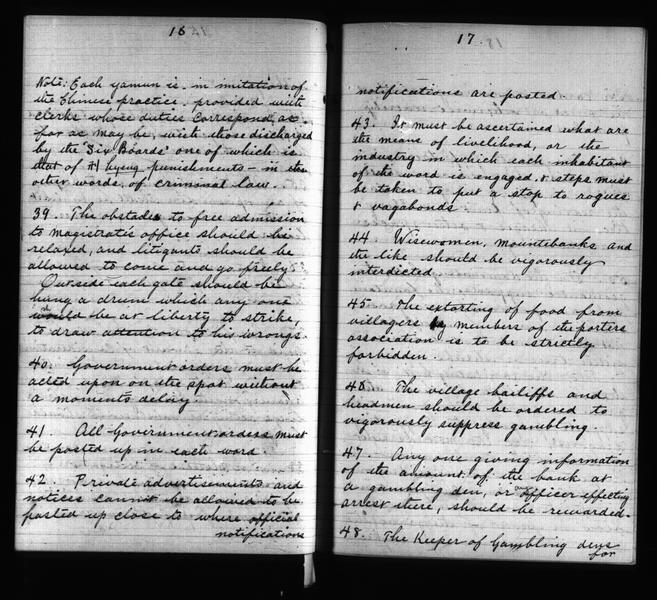 16
Note: Each yamun is, in imitation of
the Chinese practice, provided with
clerks whose duties correspond, as
far as may be, with those discharged
by the "Six Boards" one of which is
that of 刑 hyeng punishments — in the
other words, of criminal law.
39. The obstacles to free admission
to magistrate's office should be
relaxed, and litigants should be
allowed to come and go freely.
Outside each gate should be
hung a drum which any one
would be at liberty to strike,
to draw attention to his wrongs.
40. Government orders must be
acted upon on the spot without
a moments delay.
41. All Government orders must
be posted up in each word.
42. Private advertisements and
notices cannot be allowed to be
posted up close to where official
notifications
17
notifications are posted
43. It must be ascertained what are
the means of livelihood, or the
industry in which each inhabitant
of the word is engaged, & steps must
be taken to put a stop to rogues
& vagabonds.
44. Wisewomen, mountebanks and
the like should be vigorously
interdicted.
45. The extorting of food from
villagers by members of the porters
association is to be strictly
forbidden.
46. The village bailiffs and
headmen should be ordered to
vigorously suppress gambling.
47. Any one giving information
of the amount of the bank at
a gambling den, or officer effecting
arrest there, should be rewarded.
48. The Keeper of Gambling dens
for